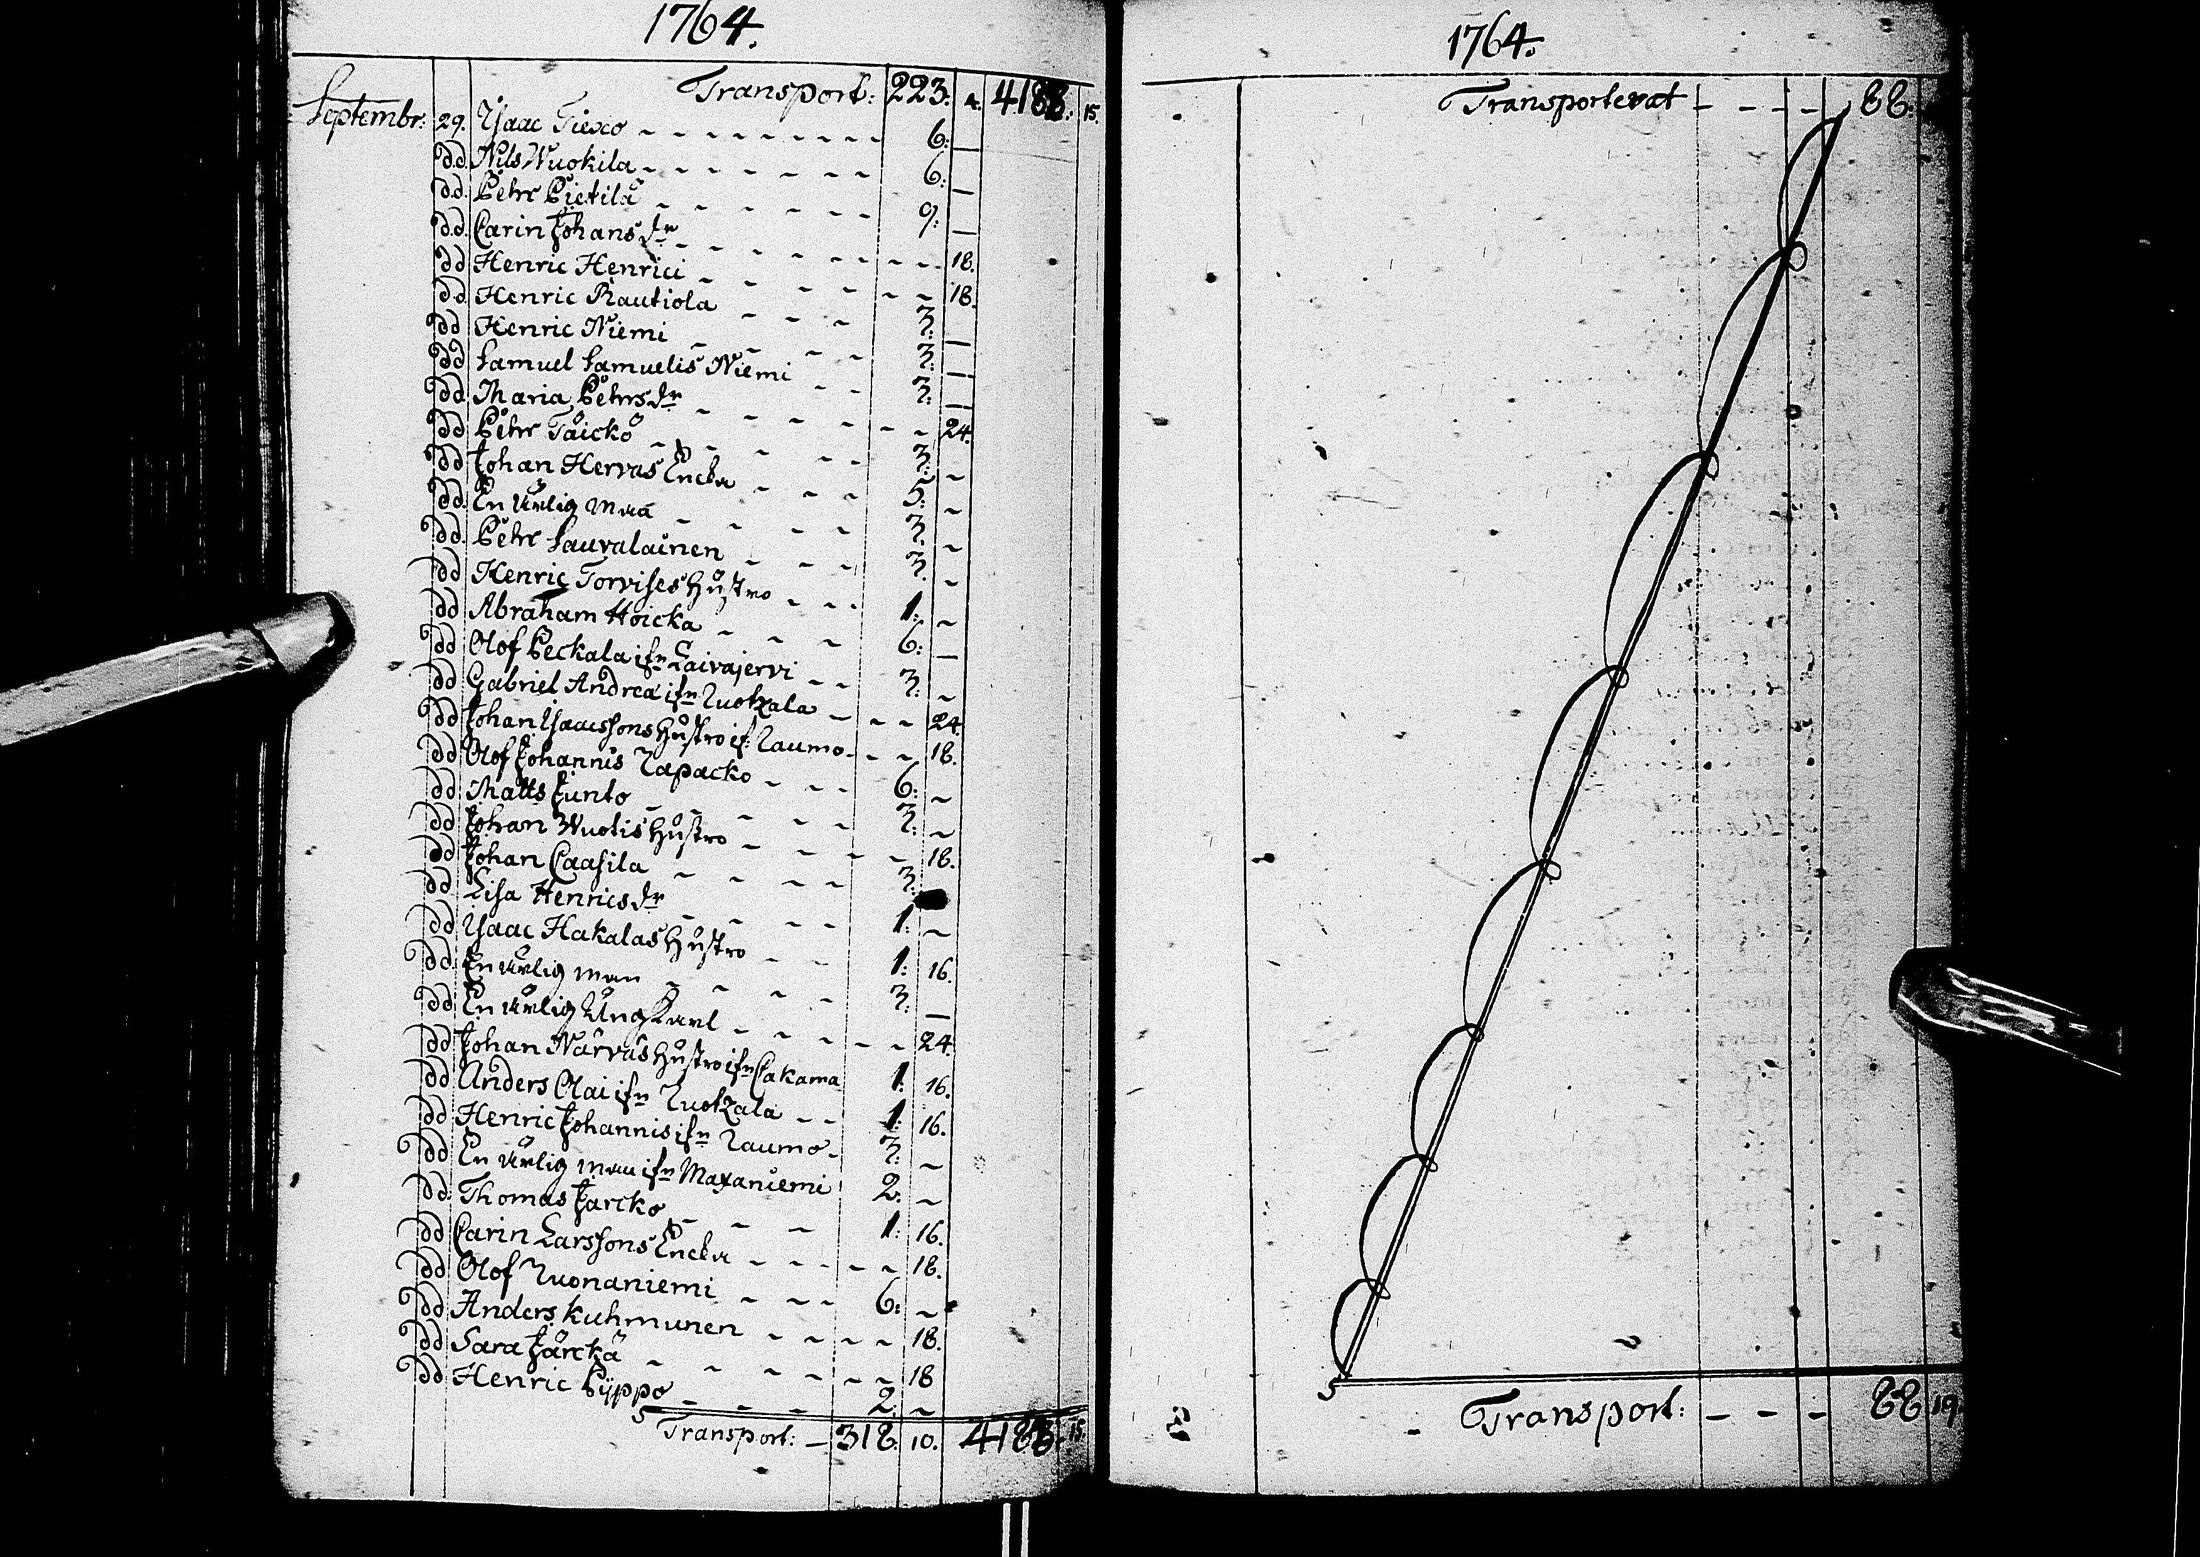 1764.
Transport: 223. 4. 4188. 15.
Septembr. 29. Ysaac Tiexo - - - - - - - - - 6: —
dd. Nils Wuokila - - - - - - - 6: —
dd. Pehr Pietilä - - - - - - 9: —
dd. Carin Johans dr - - - - - - - - 18.
dd Henric Henrici - - - - - - 18.
dd Henric Rautiola - - - 3: —
dd Henric Niemi - - - - 3: —
dd Samuel Samuelis Niemi - - 3: —
dd. Maria Pehrs dr - - - - - - 24.
dd Pehr Täickö - - - - - 3: -
dd Johan Hervas Encka - - - 5: -
dd. En ärlig man - - - - 3. -
dd. Pehr Sauvalainen - - - 3. -
dd Henric Torvises Hustro - - - 1: -
dd Abraham Hoicka - - - 6: —
dd Olof Peckala ifrn Laivajervi - - 3: -
dd Gabriel Andreæ ifrn Ruotzala - - - 24.
dd Johan Ysacssons Hustro if: Raumo - - - 18.
dd Olof Johannis Rapacko - - - 6: -
dd Matts Junto - - - - 3: -
dd Johan Wuotis Hustro - - - - 18.
dd Johan Caasila - - - - 3:
dd Lisa Henrics dr - - - - 1: -
dd Ysaac Hakalas Hustro - - 1: 16.
dd En ärlig man - - - - 3: —
dd En ärlig Ung Karl - - - - - 24.
dd Johan Närväs Hustro ifrn Cakama 1: 16.
dd Anders Olai ifrn Ruotzala - - 1: 16.
dd Henric Johannis ifrn Raumo - 3: -
dd En ärlig man ifrn Maxaniemi 2. -
dd. Thomas Jarcko - - - 1: 16.
dd Carin Larssons Encka - - - - - 18.
dd Olof Ruonaniemi - - - 6: -
dd Anders Kuhmunen - - - - 18.
dd Sara Järckä - - - - - - 18
dd Henric Pyppo - - - 2. -
Transport: - 318. 10. 4188. 15.
1764.
Transporterat - - - - 88:
Transport: - - - 88 19.